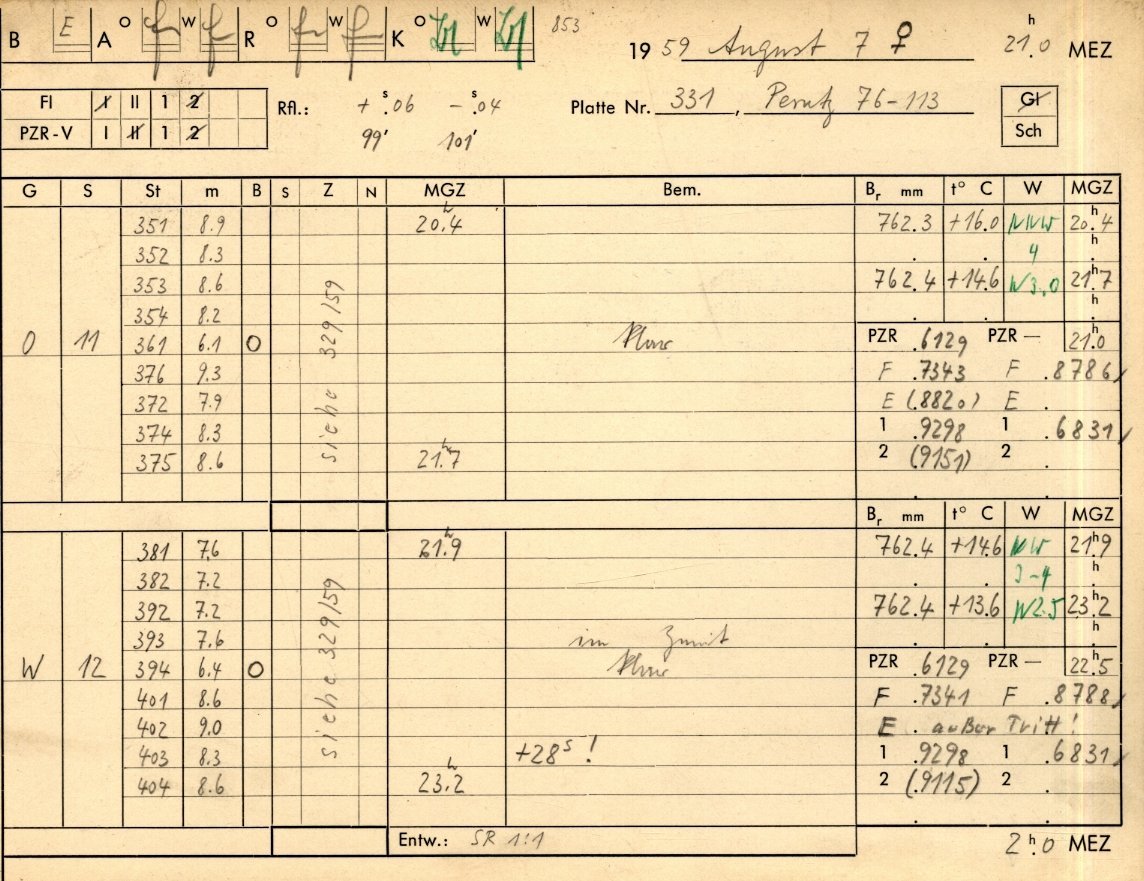 B E A O W R O W K O W 853
19 59 August 7 ♀ 21ʰ.0 MEZ
FI I II 1 2
PZR-V I II 1 2
Rfl.: +ˢ.06 −ˢ.04
99' 101'
Platte Nr. 331, Perutz 76-113
Gl
Sch
G S St m B S Z N MGZ Bem. Bᵣ mm t° C W MGZ
351 8.9 20ʰ.4 762.3 +16.0 NNW 20ʰ.4
352 8.3 4 ʰ.
353 8.6 762.4 +14.6 W3.0 21ʰ.7
354 8.2 ʰ.
O 11 361 6.1 O siehe 329/59 klar PZR .6129 PZR − 21ʰ.0
376 9.3 F .7343 F .8786
372 7.9 E (.8820) E .
374 8.3 1 .9298 1 .6831
375 8.6 21ʰ.7 2 (.9151) 2 .
Bᵣ mm t° C W MGZ
381 7.6 21ʰ.9 762.4 +14.6 NW 21ʰ.9
382 7.2 3-4 ʰ.
392 7.2 762.4 +13.6 W2.5 23ʰ.2
393 7.6 im Zenit ʰ.
W 12 394 6.4 O siehe 329/59 klar PZR .6129 PZR − 22ʰ.5
401 8.6 F .7341 F .8788
402 9.0 E . außer Tritt!
403 8.3 +28ˢ! 1 .9298 1 .6831
404 8.6 23ʰ.2 2 (.9115) 2 .
Entw.: SR 1:1 2ʰ.0 MEZ